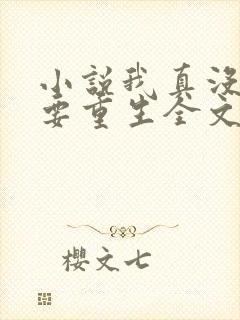 小说我真没
要重生全文
樱文七